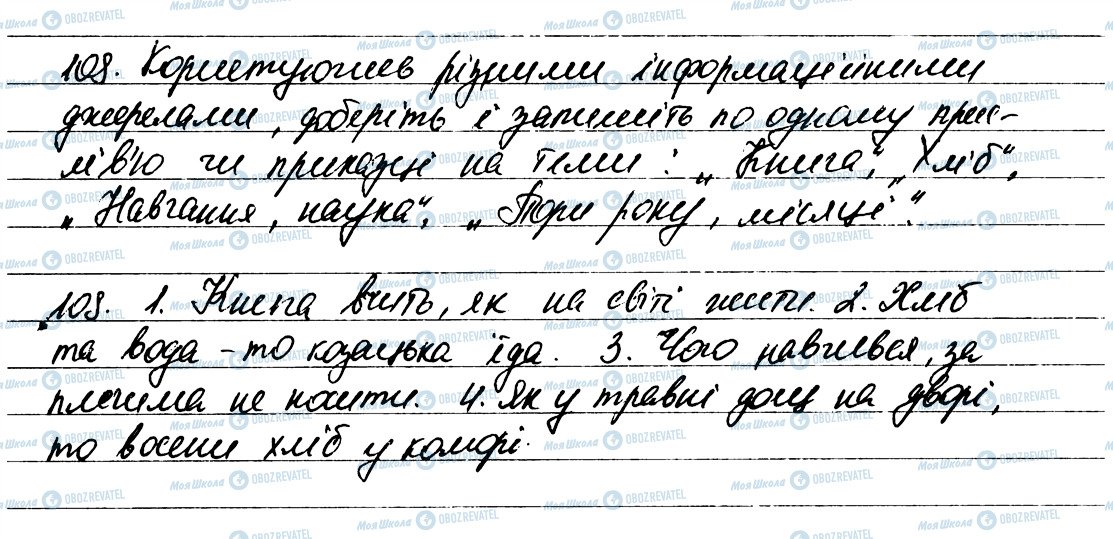 108. Користуючись різними інформаційними
джерелами, доберіть і запишіть по одному прис-
лів'ю чи приказці на теми: „Книга“, „Хліб“,
„Навчання, наука“, „Пори року, місяці“.
108. 1. Книга вчить, як на світі жити. 2. Хліб
та вода – то козацька їда. 3. Чого навчився, за
плечима не носити. 4. Як у травні дощ на дворі,
то восени хліб у коморі.